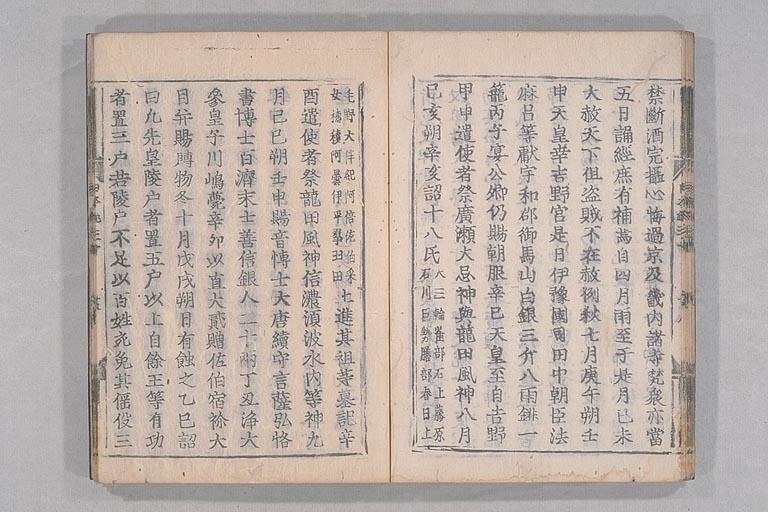 禁斷酒完攝心悔過京及畿內諸寺梵衆亦當
五日誦經庶有補焉自四月雨至于是月己未
大赦天下但盜賊不在赦例秋七月庚午朔壬
申天皇幸吉野宮是日伊豫國司田中朝臣法
麻呂等獻宇和郡御馬山白銀三斤八兩銕一
籠丙子宴公卿仍賜朝服辛巳天皇至自吉野
甲申遣使者祭廣瀨大忌神與龍田風神八月
己亥朔辛亥詔十八氏大三輪雀部石上藤原
石川巨勢膳部春日上
毛野大伴紀阿倍佐伯采
女穗積阿曇伊平群羽田進其祖等墓記辛
酉遣使者祭龍田風神信濃須波水內等神九
月己巳朔壬申賜音博士大唐續守言薩弘恪
書博士百濟末士善信銀人二十兩丁丑淨大
參皇子川嶋薨辛卯以直大貳贈佐伯宿祢大
目并賜賻物冬十月戊戌朔日有蝕之乙巳詔
曰九先皇陵戶者置五戶以上自餘王等有功
者置三戶若陵戶不足以百姓充免其徭役三